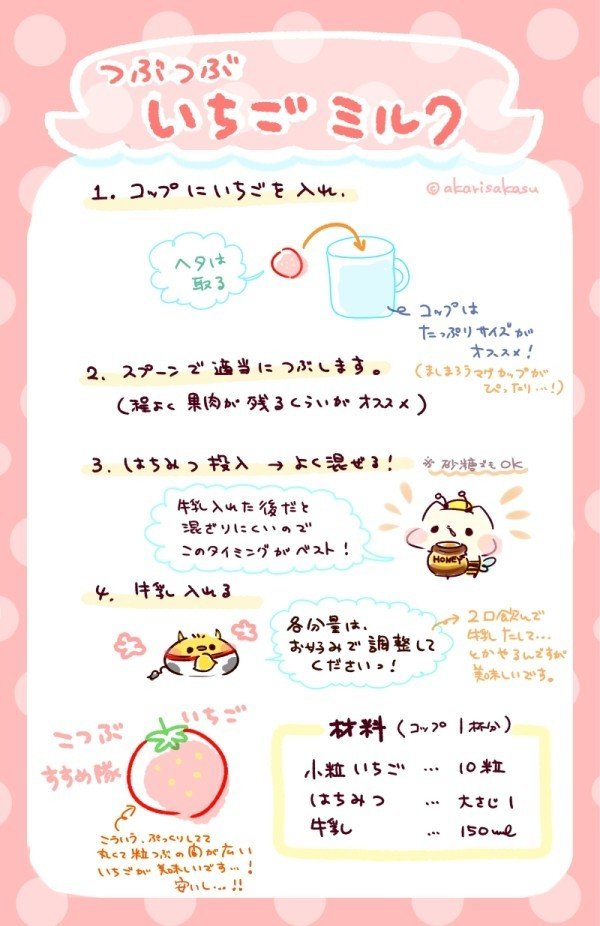 つぶつぶ
いちごミルク
1. コップにいちごを入れ、
©akarisakasu
ヘタは
取る
コップは
たっぷりサイズが
オススメ!
(ましまろうマグカップが
ぴったり…!)
2. スプーンで適当につぶします。
(程よく果肉が残るくらいがオススメ)
3. はちみつ投入 → よく混ぜる!
※砂糖でもOK
牛乳入れた後だと
混ざりにくいので
このタイミングがベスト!
HONEY
4. 牛乳入れる
各分量は、
お好みで調整して
くださいっ!
2口飲んで
牛乳たして…
とかやるんですが
美味しいです。
こつぶ
いちご
すすめ隊
こういう、ぷっくりしてて
丸くて粒つぶの間が広い
いちごが美味しいです…!
安いし…!!
材料(コップ1杯分)
小粒いちご … 10粒
はちみつ … 大さじ1
牛乳 … 150ml